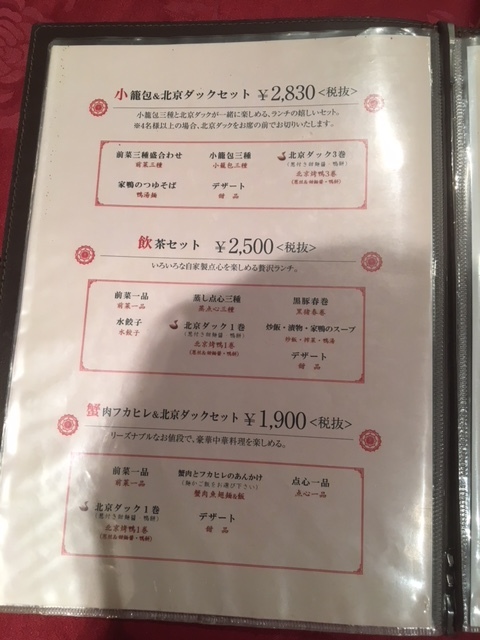 小籠包&北京ダックセット ￥2,830<税抜>
小籠包三種と北京ダックが一緒に楽しめる、ランチの嬉しいセット。
※4名様以上の場合、北京ダックをお席の前でお切りいたします。
前菜三種盛合わせ 小籠包三種 北京ダック3巻
前菜三種 小籠包三種
北京烤鴨3巻
家鴨のつゆそば デザート
鴨湯麺 甜品
飲茶セット ￥2,500<税抜>
いろいろな自家製点心を楽しめる贅沢ランチ。
前菜一品 蒸し点心三種 黒豚春巻
前菜一品 蒸点心三種 黒猪春巻
水餃子 北京ダック1巻 炒飯・漬物・家鴨のスープ
水餃子 炒飯・搾菜・鴨湯
北京烤鴨1巻 デザート
甜品
蟹肉フカヒレ&北京ダックセット ￥1,900<税抜>
リーズナブルなお値段で、豪華中華料理を楽しめる。
前菜一品 蟹肉とフカヒレのあんかけ 点心一品
前菜一品 (麺かご飯をお選び下さい) 点心一品
蟹肉魚翅麺&飯
北京ダック1巻 デザート
北京烤鴨1巻 甜品